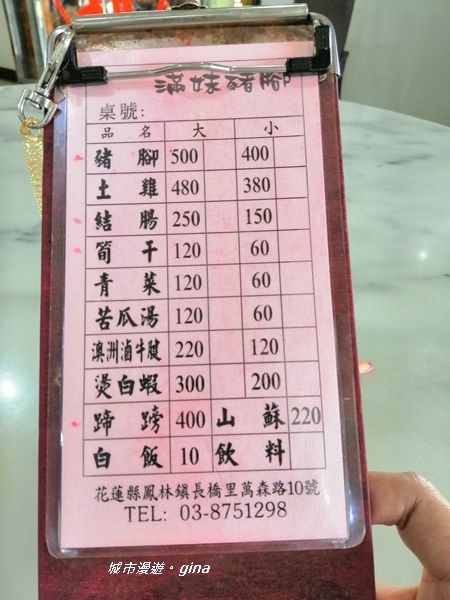 滿妹豬腳
桌號:
品 名 大 小
豬 腳 500 400
土 雞 480 380
結 腸 250 150
筍 干 120 60
青 菜 120 60
苦瓜湯 120 60
澳洲滷牛腱 220 120
燙白蝦 300 200
蹄 膀 400 山 蘇 220
白 飯 10 飲 料
花蓮縣鳳林鎮長橋里萬森路10號
TEL: 03-8751298
城市漫遊。gina